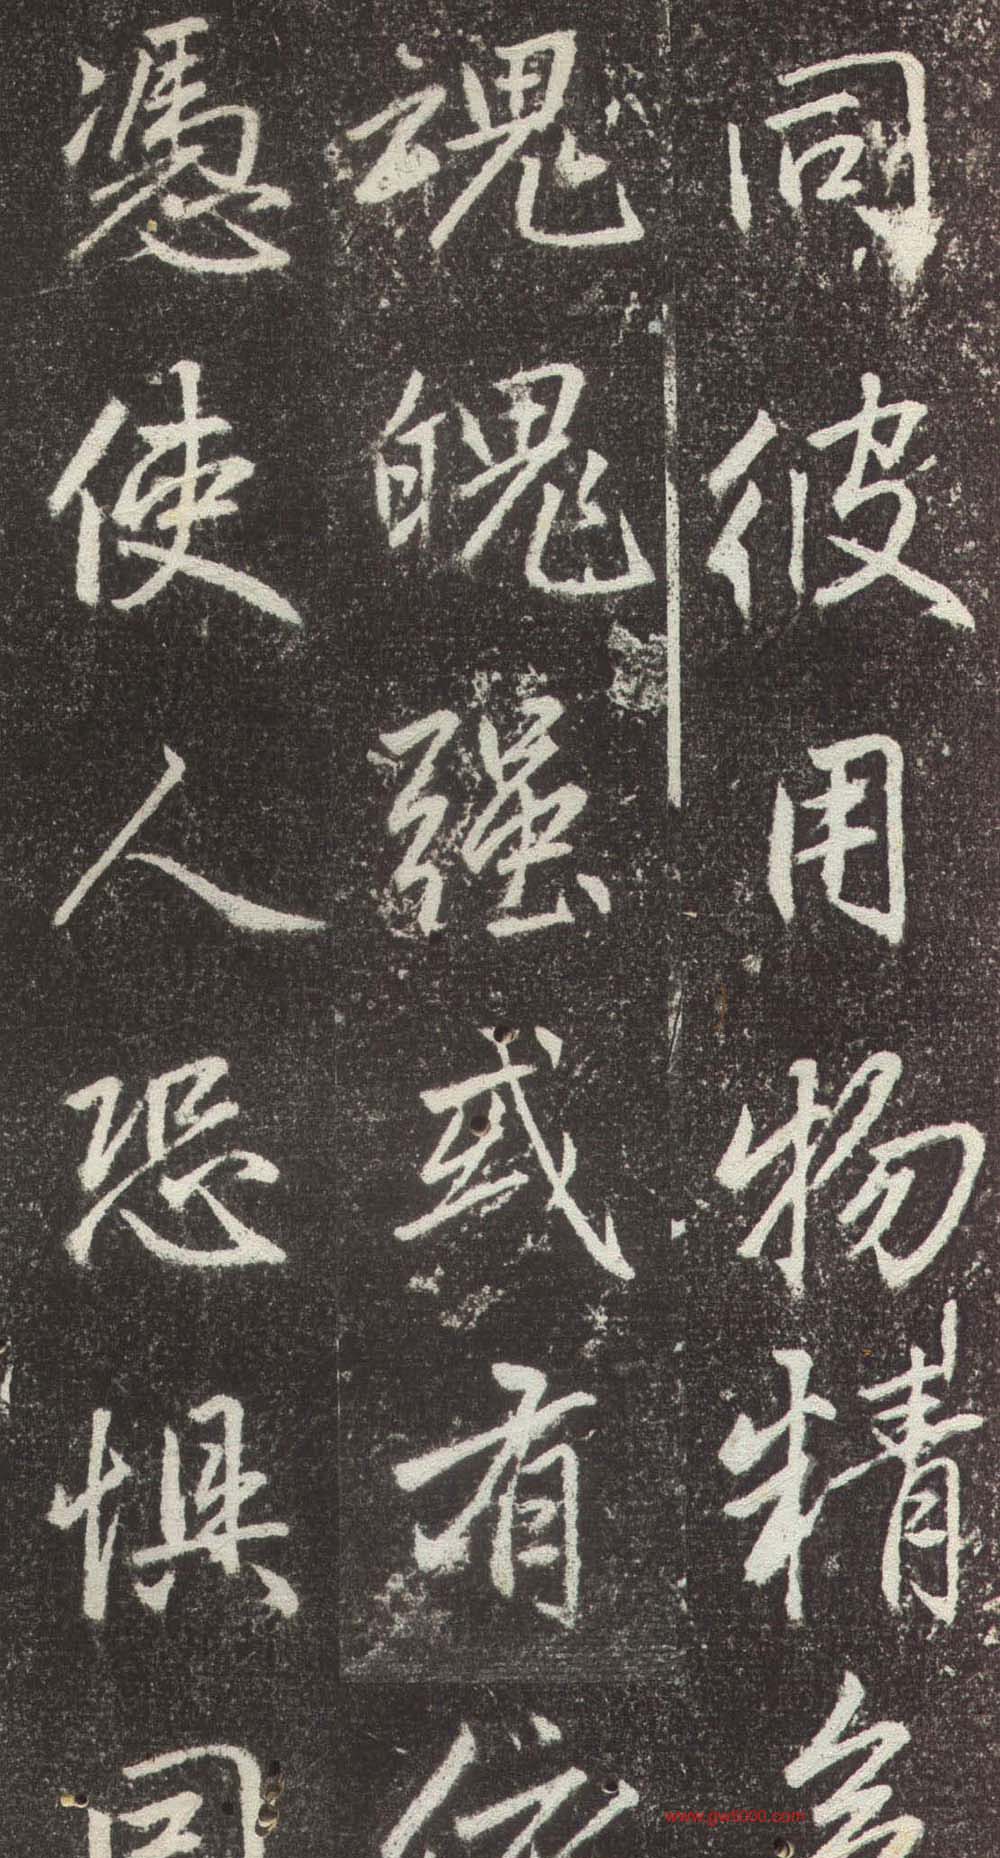 同彼用物精多
魂魄强或有依
憑使人恐懼同
www.gw5000.com